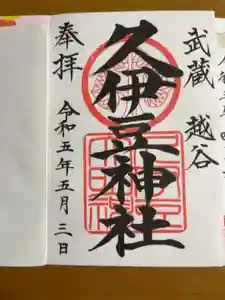 武蔵 越谷
久伊豆神社
奉拝
令和五年五月三日